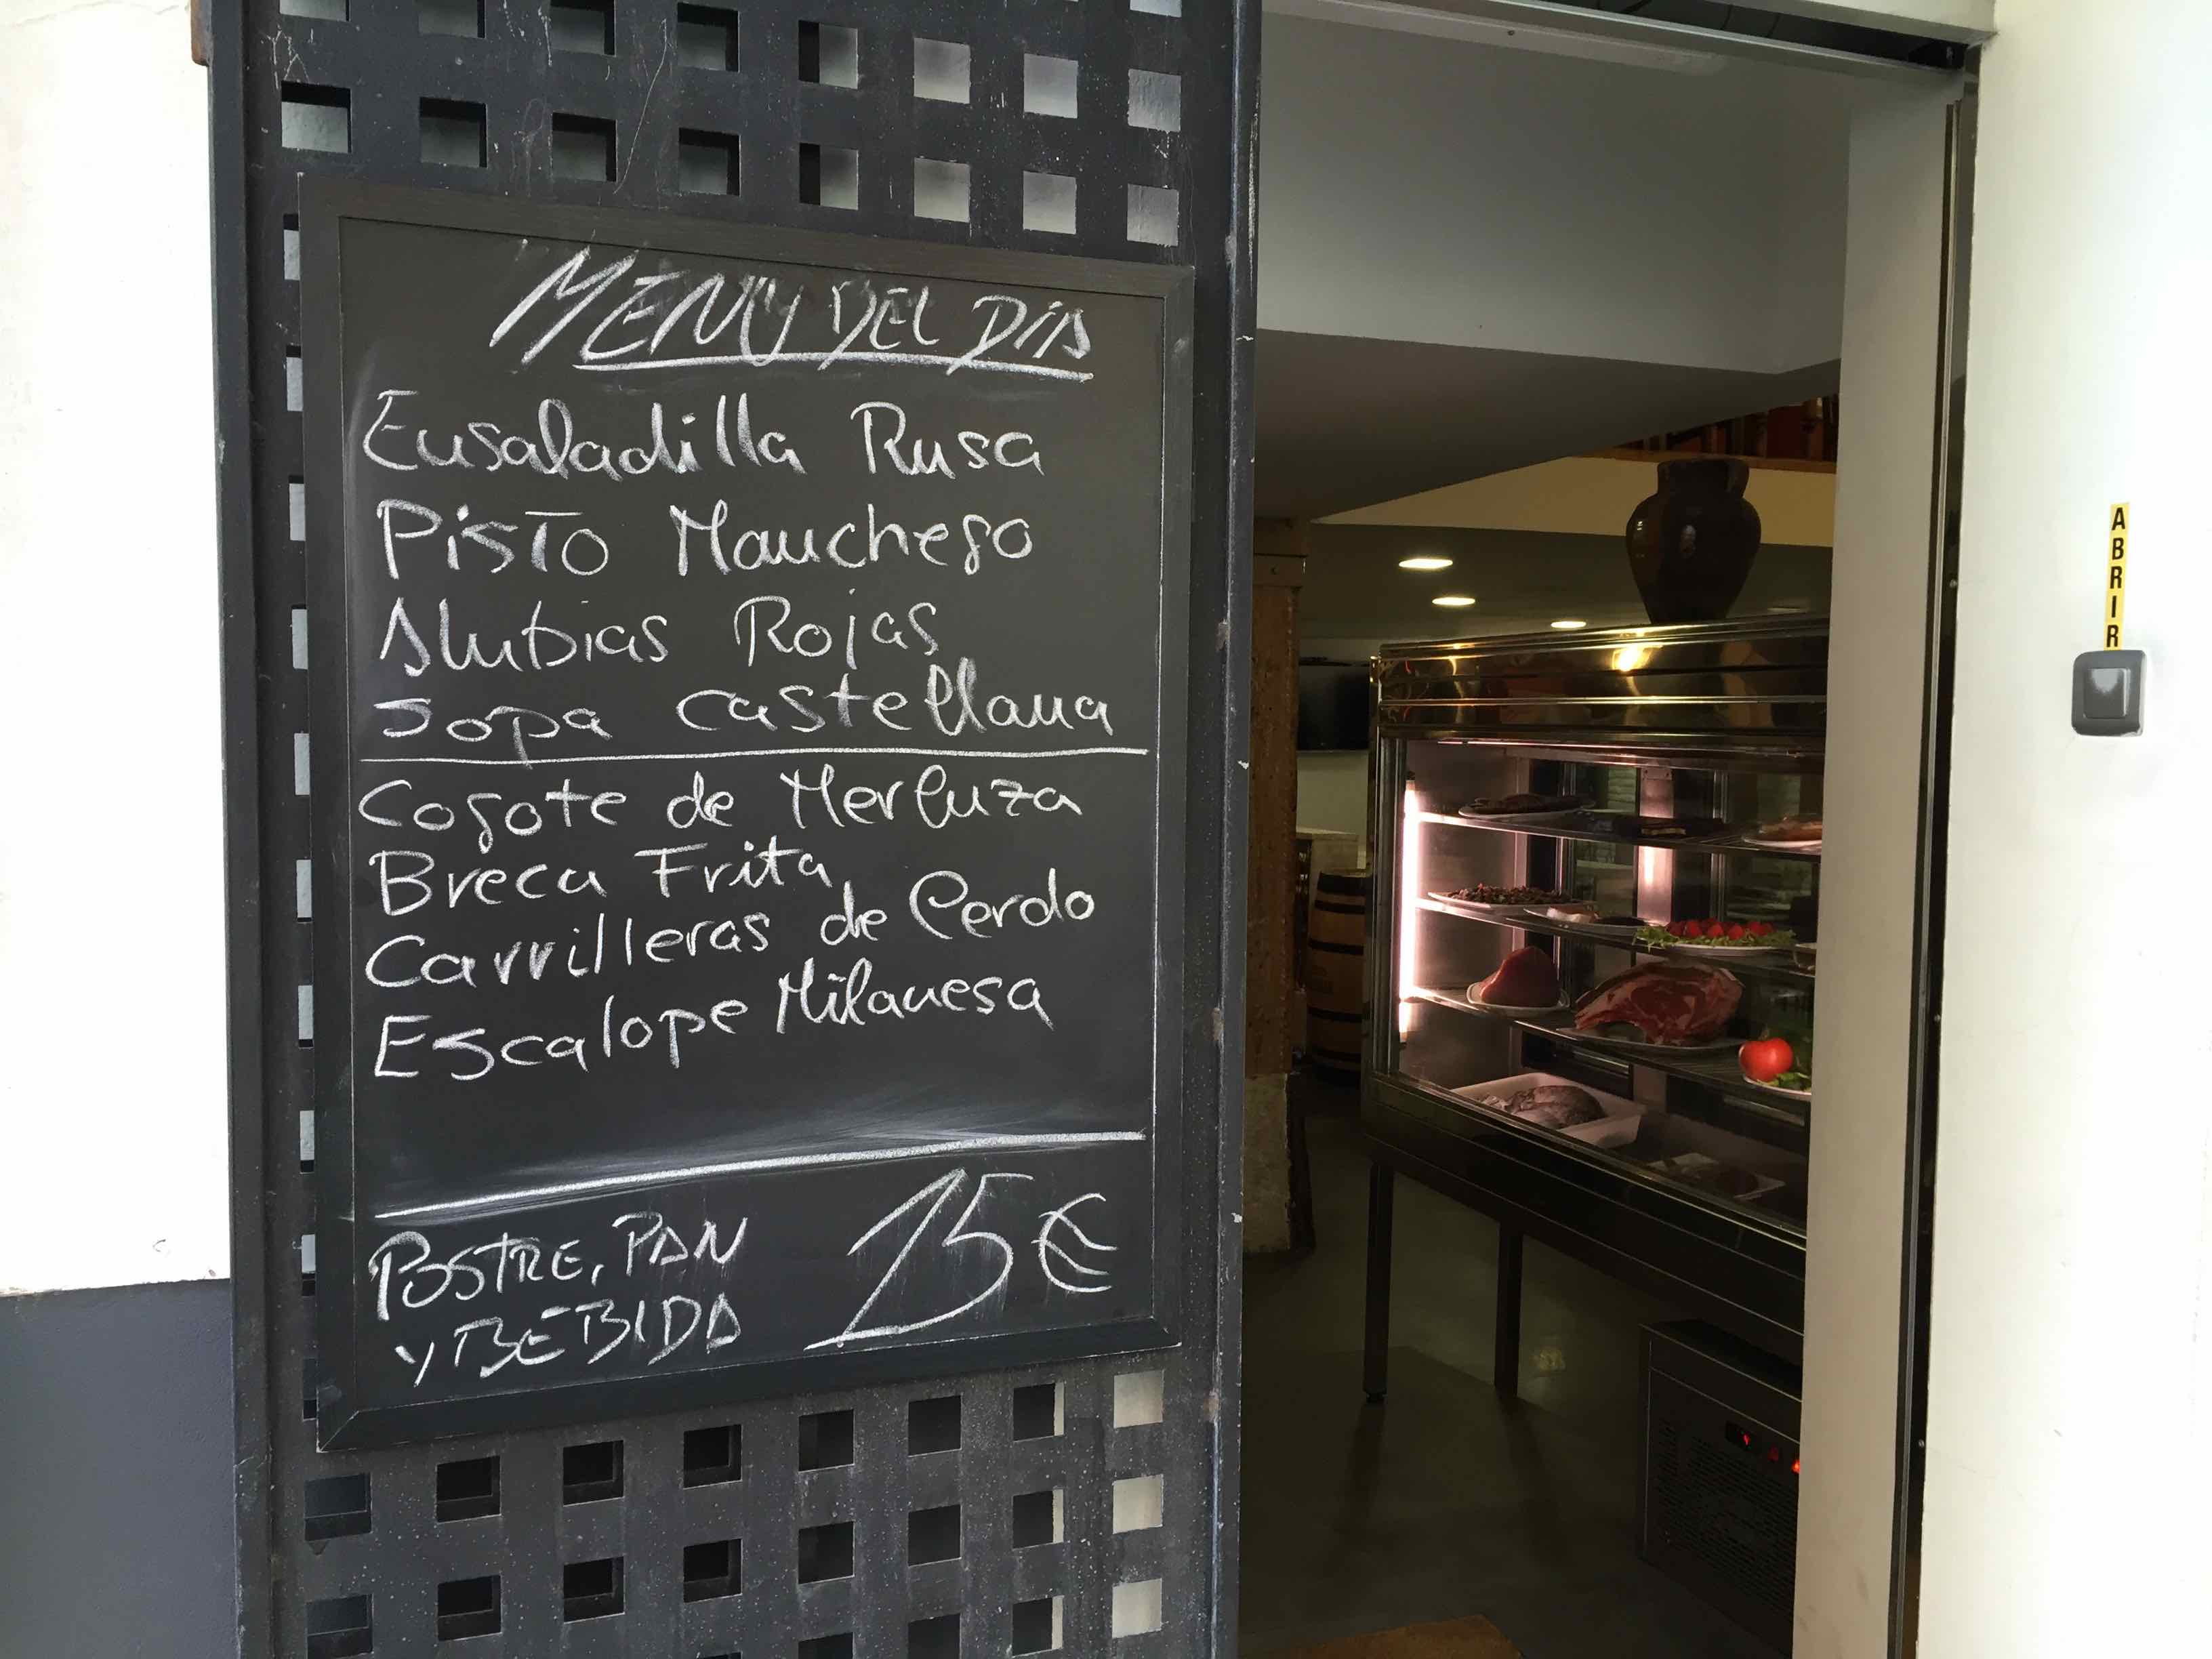 MENÚ DEL DÍA
Ensaladilla Rusa
Pisto Manchego
Alubias Rojas
Sopa Castellana
Cogote de Merluza
Breca Frita
Carrilleras de Cerdo
Escalope Milanesa
POSTRE, PAN
Y BEBIDA
15€
ABRIR